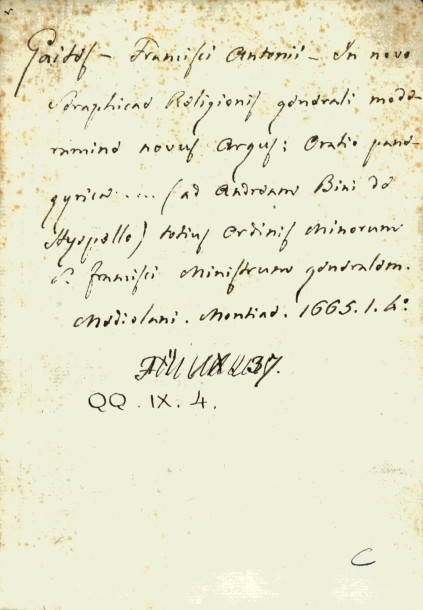 Gaitos - Francisci Antonii - In novo
Seraphicae Religionis generali mode-
ramine novus Argus: Oratio pane-
gyrica .... (ad Andream Bini de
Hyspello) totius Ordinis Minorum
S. Francisci Ministrum generalem.
Mediolani. Montiae. 1665. 1. 4°.
37.
QQ. IX. 4.
C